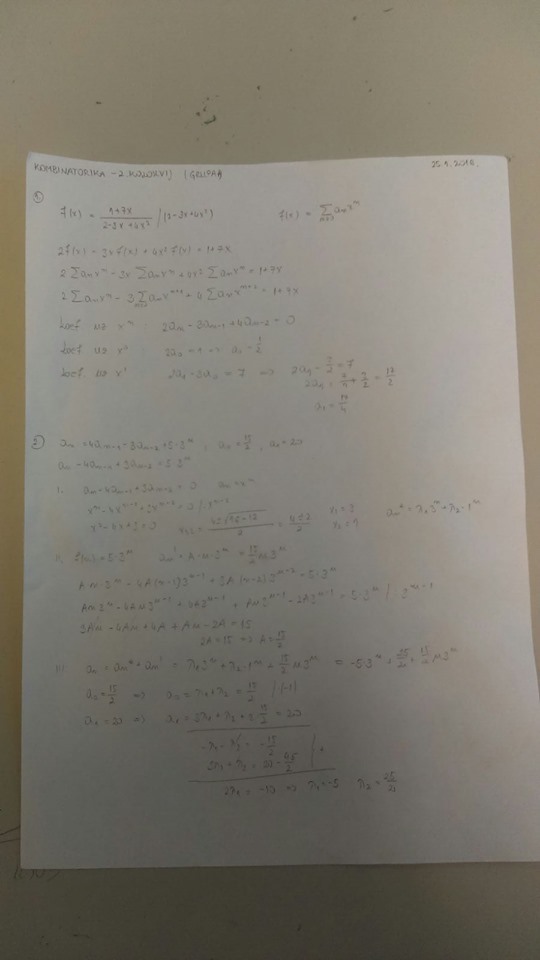 KOMBINATORIKA - 2. KOLOKVIJ (GRUPA) 25.1.2016.
①
f(x) = (1+7x)/(2-3x+4x²) /(2-3x+4x²) f(x) = ∑ aₙxⁿ
2f(x) - 3x f(x) + 4x² f(x) = 1+7x
2∑aₙxⁿ - 3x ∑aₙxⁿ + 4x² ∑aₙxⁿ = 1+7x
2∑aₙxⁿ - 3∑aₙxⁿ⁺¹ + 4∑aₙxⁿ⁺² = 1+7x
koef uz xⁿ 2aₙ - 3aₙ₋₁ + 4aₙ₋₂ = 0
koef uz x⁰ 2a₀ = 1 => = 1/2
koef uz x¹ 2a₁ - 3a₀ = 7 => 2a₁ - 3/2 = 7
= 17/2
a₁ = 17/4
② aₙ = 4aₙ₋₁ - 3aₙ₋₂ + 5·3ⁿ, a₀ = 15/2, a₁ = 20
aₙ - 4aₙ₋₁ + 3aₙ₋₂ = 5·3ⁿ
I. aₙ - 4aₙ₋₁ + 3aₙ₋₂ = 0 aₙ = xⁿ
xⁿ - 4xⁿ⁻¹ + 3xⁿ⁻² = 0 /:xⁿ⁻²
x² - 4x + 3 = 0 = (4±2)/2 x₁ = 3 x₂ = 1 = λ₁3ⁿ + λ₂·1ⁿ
II. f(n) = 5·3ⁿ = A·n·3ⁿ = 15/2 n3ⁿ
An·3ⁿ - 4A(n-1)3ⁿ⁻¹ + 3A(n-2)3ⁿ⁻² = 5·3ⁿ
3An - 4An + 4A + An - 2A = 15
2A = 15 => A = 15/2
III = λ₁3ⁿ + λ₂·1ⁿ + 15/2 n3ⁿ = -5·3ⁿ + 25/2 + 15/2 n3ⁿ
a₀ = 15/2 => a₀ = λ₁ + λ₂ = 15/2 /(-1)
a₁ = 20 => a₁ = 3λ₁ + λ₂ + 3·15/2 = 20
-λ₁ - λ₂ = -15/2
3λ₁ + λ₂ = 20 - 45/2 +
2λ₁ = -10 => λ₁ = -5 λ₂ = 25/2